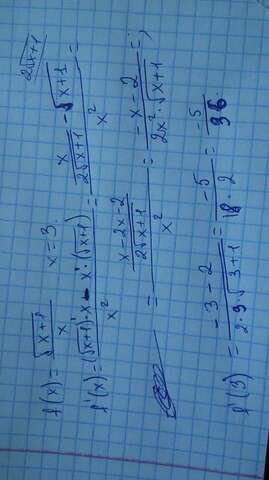 2√x+1
f(x) = √x+1 / x x = 3
f'(x) = (√x+1)'·x - x'·(√x+1) / x² = x / 2√x+1 - √x+1 / x² =
= x-2x-2 / 2√x+1 / x² = -x-2 / 2x²·√x+1 =;
f'(3) = -3-2 / 2·9·√3+1 = -5 / 18·2 = -5 / 36.